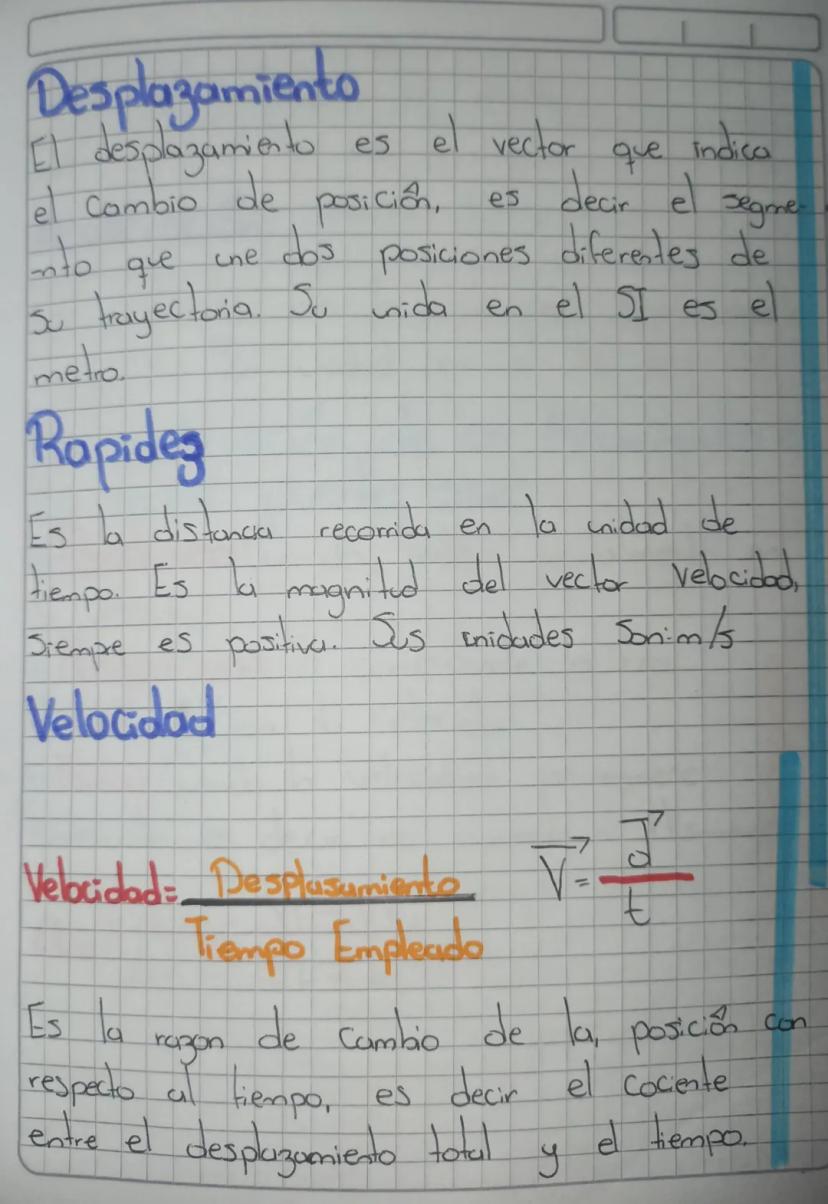 Desplazamiento
El desplazamiento es el vector que indica
el cambio de posición, es decir el segme-
nto que une dos posiciones diferentes de
su trayectoria. Su unida en el SI es el
metro.
Rapidez
Es la distancia recorrida en la unidad de
tiempo. Es la magnitud del vector velocidad,
siempre es positiva. Sus unidades son: m/s
Velocidad
Velocidad = Desplasamiento V = d
Tiempo Empleado t
Es la razon de cambio de la, posición con
respecto al tiempo, es decir el cociente
entre el desplazamiento total y el tiempo.